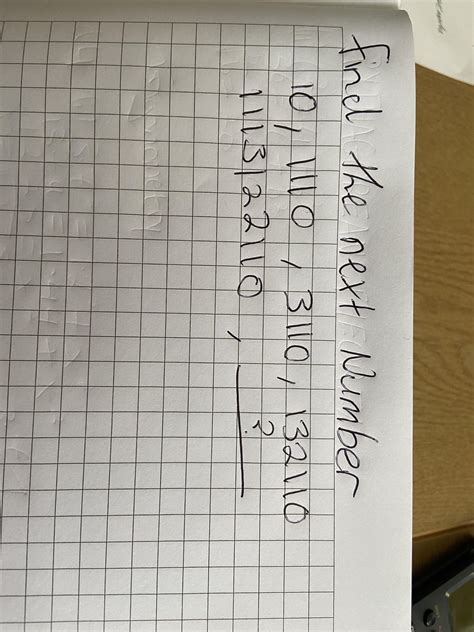 find the next Number
10, 1110, 3110, 132110
1113122110, ?